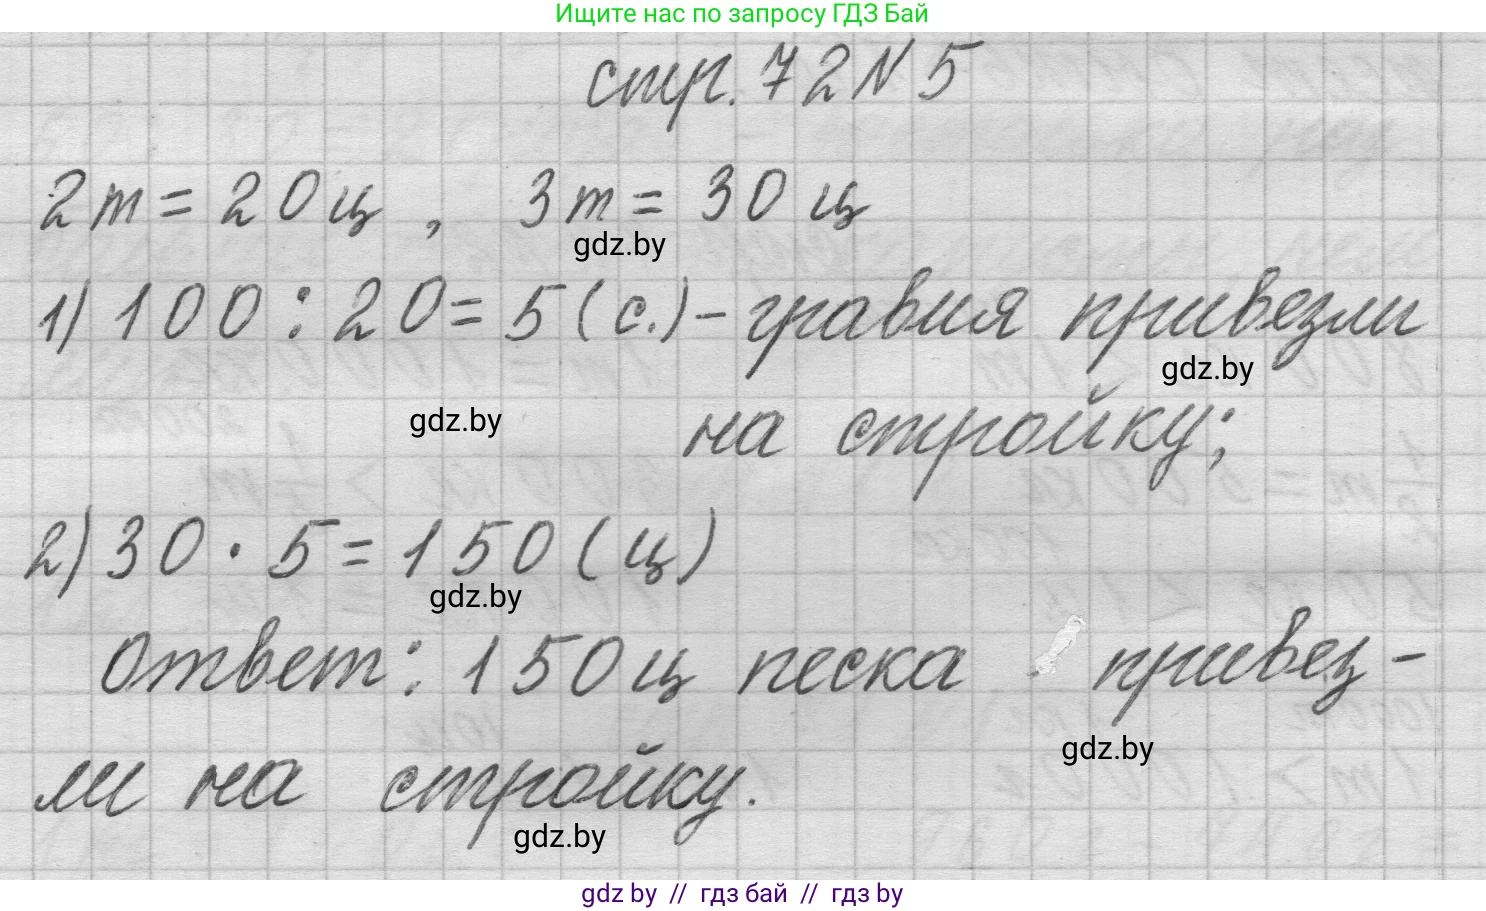 Ищите нас по запросу ГДЗ Бай
стр. 72 N 5
2 т = 20 ц , 3 т = 30 ц
gdz.by
1) 100 : 20 = 5 (с.) - гравия привезли
gdz.by
gdz.by
на стройку;
2) 30 · 5 = 150 (ц)
gdz.by
Ответ: 150 ц песка привез-
gdz.by
ли на стройку.
gdz.by
gdz by // гдз бай // гдз by